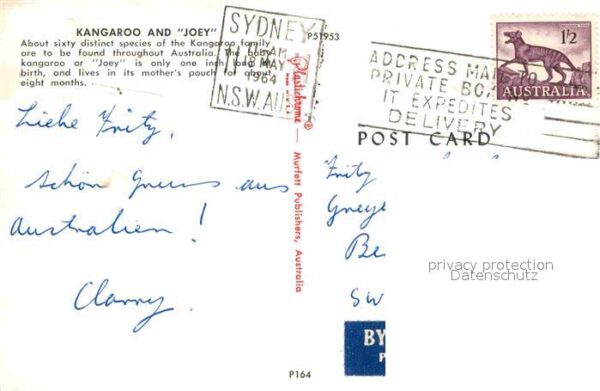 KANGAROO AND "JOEY"
About sixty distinct species of the Kangaroo family
are to be found throughout Australia. The baby
kangaroo or "Joey" is only one inch long at
birth, and lives in its mother's pouch for about
eight months.
SYDNEY
MAY
1964
N.S.W. AUST
P51953
Plastichrome® Murfett Publishers, Australia
1'2
AUSTRALIA
ADDRESS MAIL TO
PRIVATE BOX
IT EXPEDITES
DELIVERY
POST CARD
Liebe Fritz,
schön Gruss aus
Australien!
Clarry.
Fritz
Greye
Be
Sw
privacy protection
Datenschutz
BY
P
P164